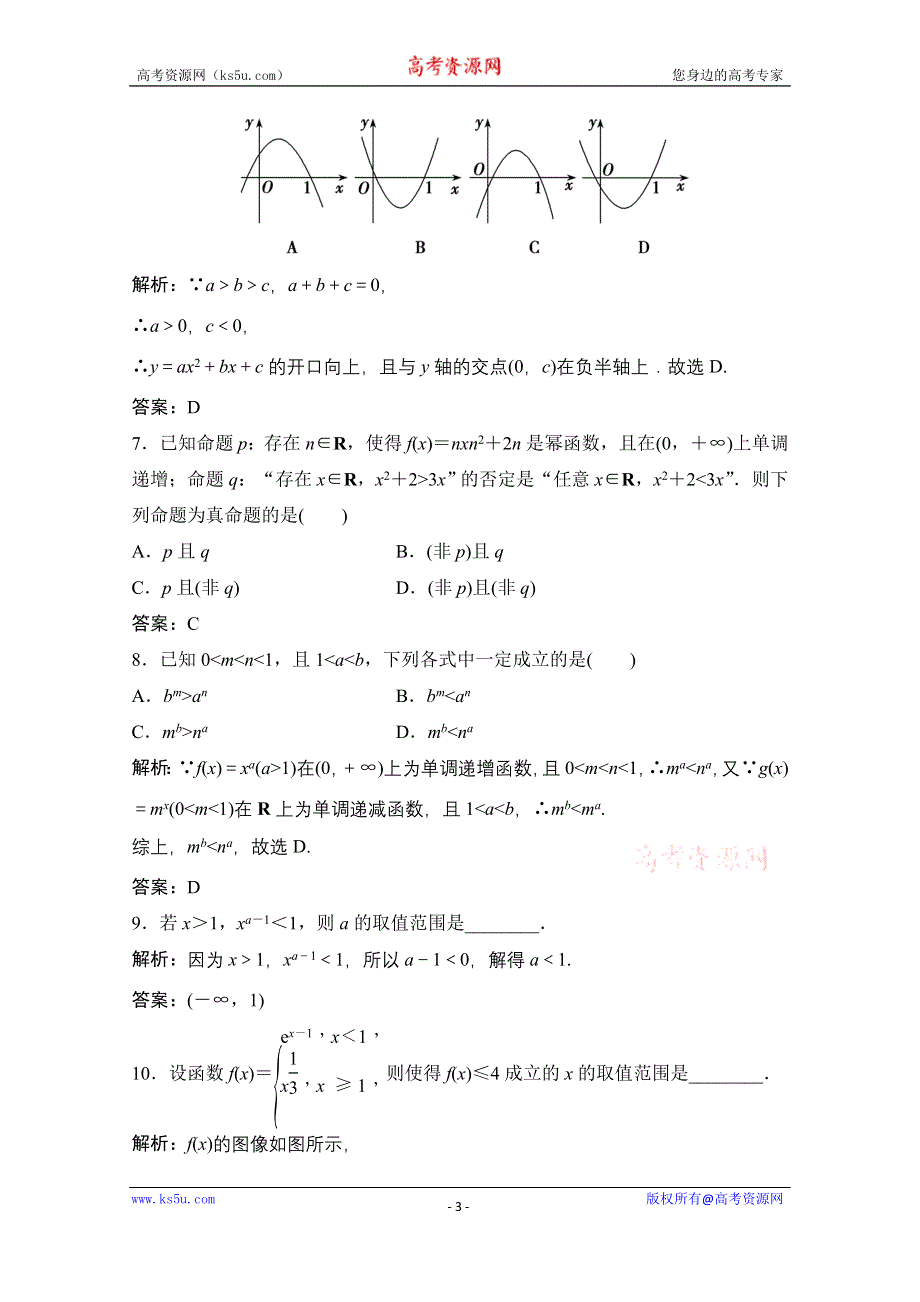 高考资源网（ks5u.com） 高考资源网 您身边的高考专家
y y y y
O 1 x O 1 x O 1 x O 1 x
A B C D
解析：∵a＞b＞c，a＋b＋c＝0，
∴a＞0，c＜0，
∴y＝ax2＋bx＋c 的开口向上，且与 y 轴的交点(0，c)在负半轴上．故选 D.
答案：D
7．已知命题 p：存在 n∈R，使得 f(x)＝nxn2＋2n 是幂函数，且在(0，＋∞)上单调
递增；命题 q：“存在 x∈R，x2＋2>3x”的否定是“任意 x∈R，x2＋2<3x”．则下
列命题为真命题的是(　　)
A．p 且 q B．(非 p)且 q
C．p 且(非 q) D．(非 p)且(非 q)
答案：C
8．已知 0<m<n<1，且 1<a<b，下列各式中一定成立的是(　　)
A．bm>an B．bm<an
C．mb>na D．mb<na
解析：∵f(x)＝xa(a>1)在(0，＋∞)上为单调递增函数，且 0<m<n<1，∴ma<na，又∵g(x)
＝mx(0<m<1)在 R 上为单调递减函数，且 1<a<b，∴mb<ma.
综上，mb<na，故选 D.
高考资源网
答案：D
9．若 x＞1，xa－1＜1，则 a 的取值范围是________．
解析：因为 x＞1，xa－1＜1，所以 a－1＜0，解得 a＜1.
答案：(－∞，1)
10．设函数 f(x)＝{ex－1，x＜1，x1/3，x ≥1，则使得 f(x)≤4 成立的 x 的取值范围是________．
解析：f(x)的图像如图所示，
www.ks5u.com - 3 - 版权所有@高考资源网